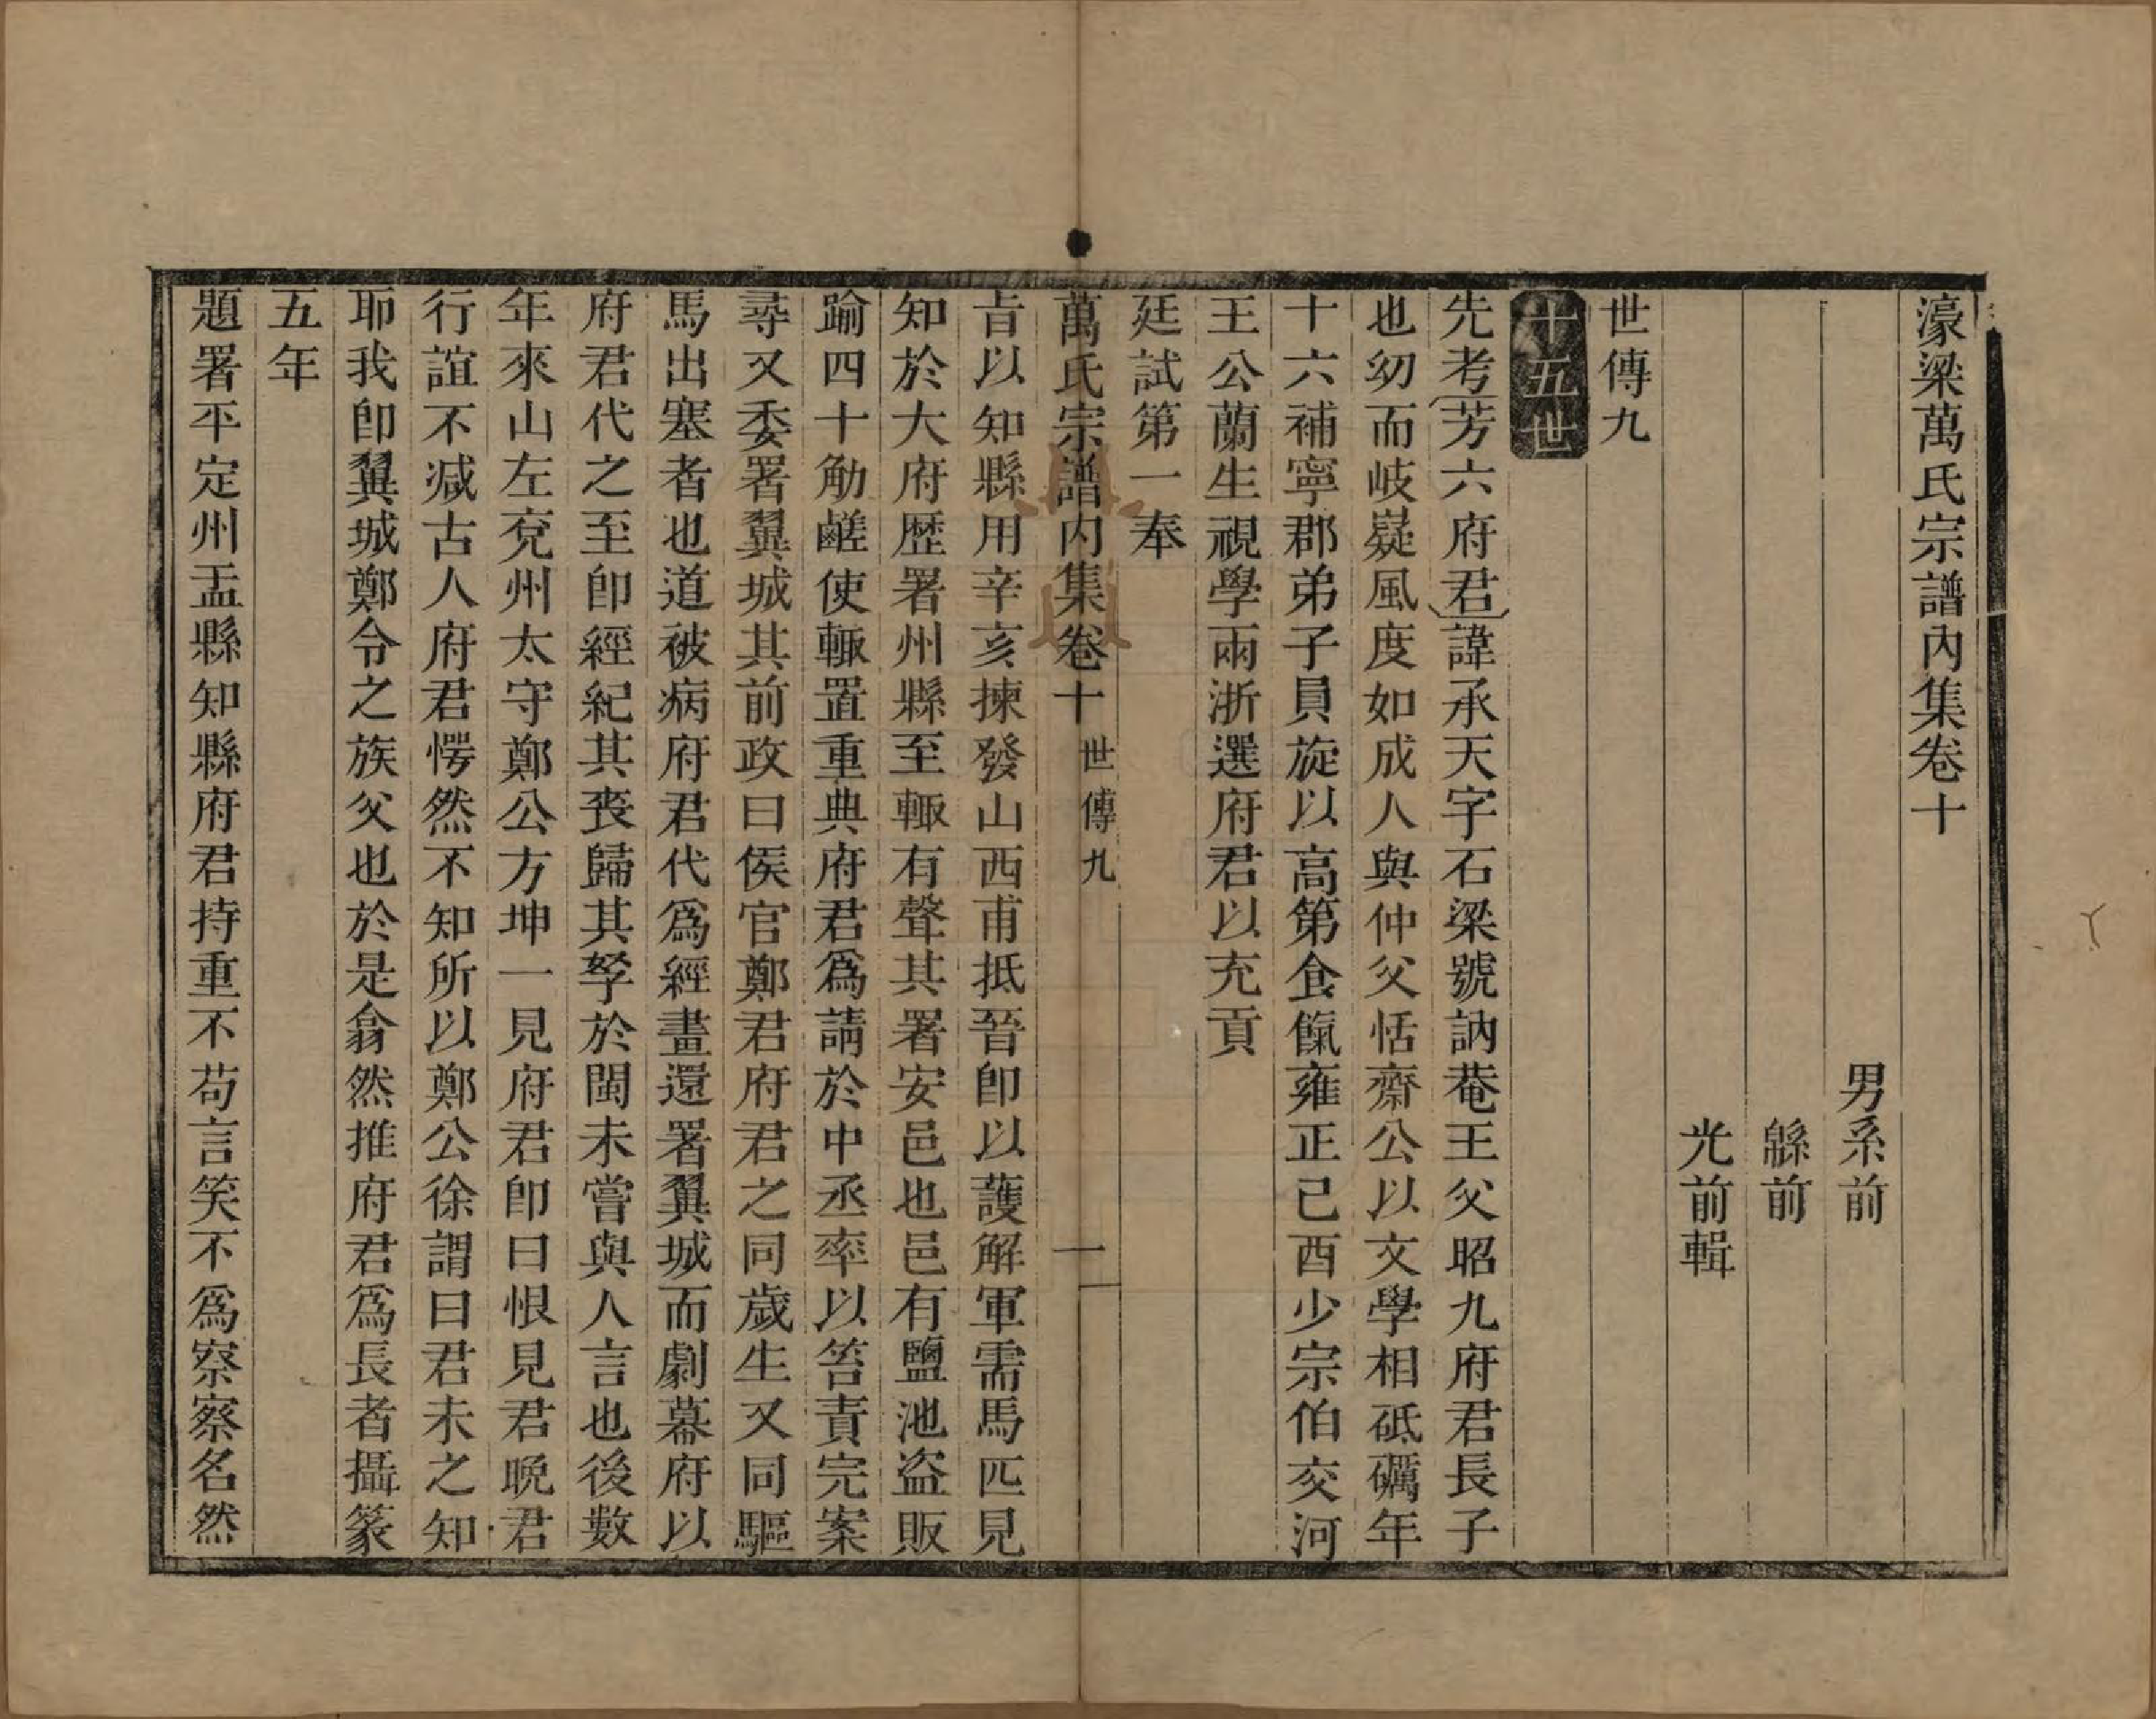 濠梁萬氏宗譜內集卷十
男系前
緜前
光前輯
世傳九
十五世
先考芳六府君諱承天字石梁號訥菴王父昭九府君長子
也幼而岐嶷風度如成人與仲父恬齋公以文學相砥礪年
十六補寧郡弟子員旋以高第食餼雍正己酉少宗伯交河
王公蘭生視學兩浙選府君以充貢
廷試第一奉
萬氏宗譜内集卷十 世傳九 一
旨以知縣用辛亥揀發山西甫抵晉卽以護解軍需馬匹見
知於大府歷署州縣至輒有聲其署安邑也邑有鹽池盜販
踰四十觔鹺使輒置重典府君爲請於中丞率以笞責完案
尋又委署翼城其前政曰侯官鄭君府君之同歲生又同驅
馬出塞者也道被病府君代爲經畫還署翼城而劇幕府以
府君代之至卽經紀其喪歸其孥於閩未嘗與人言也後數
年來山左兗州太守鄭公方坤一見府君卽曰恨見君晚君
行誼不減古人府君愕然不知所以鄭公徐謂曰君未之知
耶我卽翼城鄭令之族父也於是翕然推府君爲長者攝篆
五年
題署平定州盂縣知縣府君持重不苟言笑不爲察察名然